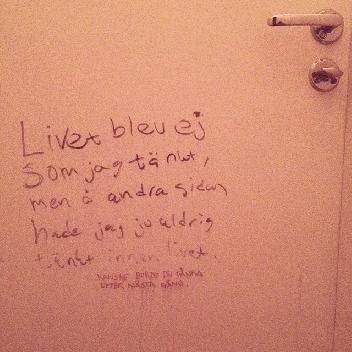 Livet blev ej
Som jag tänkt,
men å andra sidan
hade jag ju aldrig
tänkt innan livet.
KANSKE BORDE DU TÄNKA
EFTER NÄSTA GÅNG.